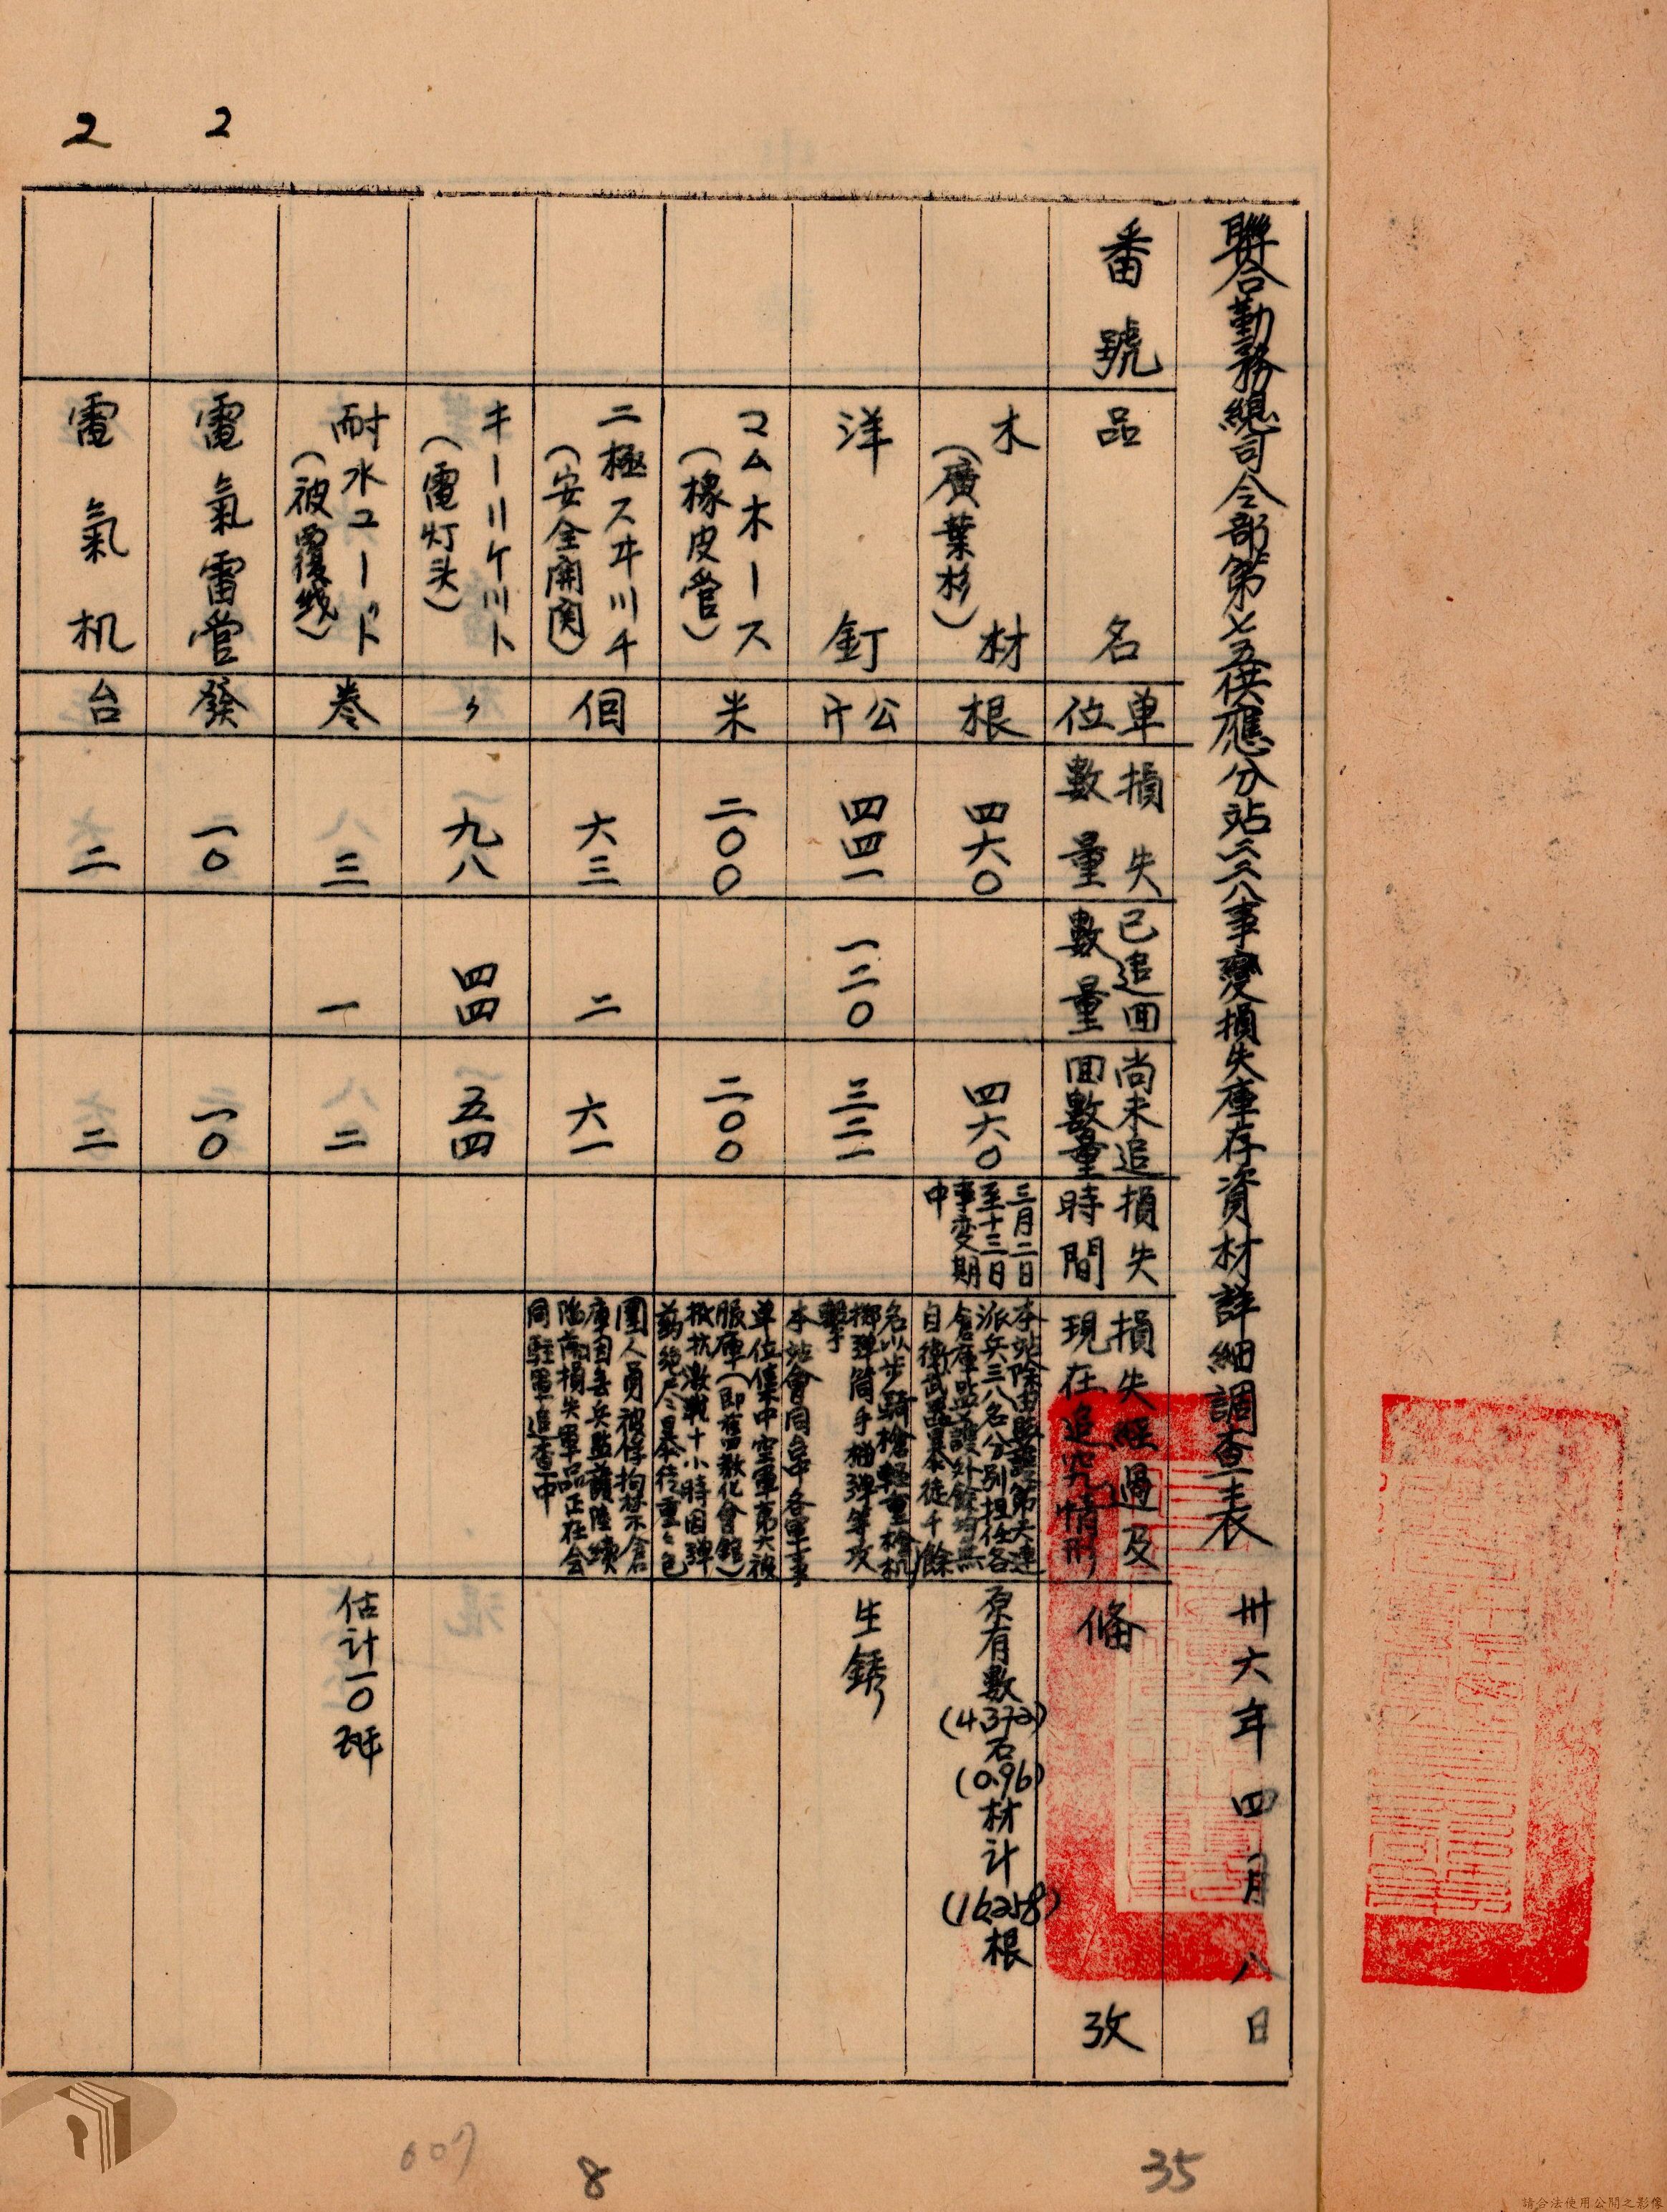 聯合勤務總司令部第七五供應分站二二八事變損失庫存資材詳細調查表 卅六年四月八日
番號
品名
單位
損失數量
已追回數量
尚未追回數量
損失時間
損失經過及現在追究情形
備攷
木材
(廣葉杉)
根
四六〇
四六〇
三月二日
至十三日
事变期
中
本站除由監護第大連
派兵三八名分別担任各
倉庫監護外餘均無
自衛武器暴徒千餘
原有數(4.372)石(0.96)材計(16258)根
洋釘
公斤
四四一
一二〇
三二一
名以步騎槍輕重槍机
擲弹筒手榴弹等攻
擊
本站會同台中各軍事
生銹
コムホース
(橡皮管)
米
二〇〇
二〇〇
單位集中空軍第大被
服庫(即舊田教化會館)
抵抗激戰十小時因弹
葯絶尽暴徒重重包
二極スヰ川チ
(安全開関)
個
六三
二
六一
圍人員被俘拘禁不倉
庫因無兵監護陸續
陷前損失軍品正在会
同駐軍追查中
キーリケ川ト
(電灯头)
〃
九八
四四
五四
耐水コード
(被覆綫)
卷
三
一
二
估計一〇码
電氣雷管
發
一〇
一〇
電氣机
台
二
二
2
2
607
8
35
請合法使用公開之影像